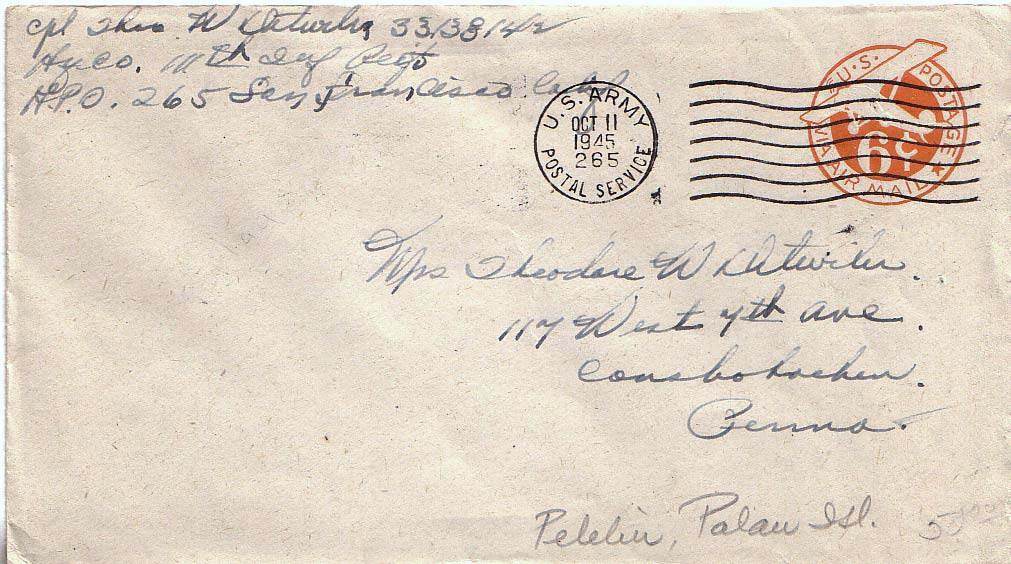 Cpl Theo W Detwiler 33138142
Hq Co. 111th Inf Regt
A.P.O. 265 San Francisco Calif
U.S. ARMY
OCT 11
1945
265
POSTAL SERVICE
U.S. POSTAGE
6¢
VIA AIR MAIL
Mrs Theodore W Detwiler.
117 West 7th Ave.
Conshohocken.
Penna.
Peleliu, Palau Isl.